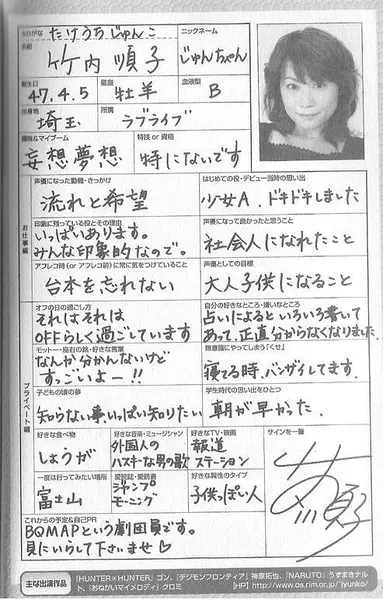 ふりがな たけうち じゅんこ
ニックネーム
名前 竹内 順子
じゅんちゃん
誕生日
星座
血液型
47.4.5
牡羊
B
出身地 埼玉
所属 ラブライブ
趣味&マイブーム
特技 or 資格
妄想夢想
特にないです
お仕事編
声優になった動機・きっかけ
はじめての役・デビュー当時の思い出
流れと希望
少女A.ドキドキしました
印象に残っている役とその理由
声優になって良かったと思うこと
いっぱいあります。
みんな印象的なので。
社会人になれたこと
アフレコ時(or アフレコ前)に常に気をつけていること
声優としての目標
台本を忘れない
大人子供になること
プライベート編
オフの日の過ごし方
自分の好きなところ・嫌いなところ
それはそれは
OFFらしく過ごしています
占いによるといろいろ書いて
あって、正直分からなくなりました。
モットー・座右の銘・好きな言葉
無意識にやってしまう「くせ」
なんか分かんないけど
すっごいよー!!
寝てる時、バンザイしてます。
子どもの頃の夢
学生時代の思い出をひとつ
知らない事、いっぱい知りたい
朝が早かった.
好きな食べ物
好きな音楽・ミュージシャン
好きなTV・映画
サインを一筆
しょうが
外国人の
ハスキーな男の歌
報道
ステーション
一度は行ってみたい場所
愛読誌・愛読書
好きな異性のタイプ
富士山
ジャンプ&
モーニング
子供っぽい人
これからの予定&自己PR
BQMAPという劇団員です。
見にいらして下さいませ♡
主な出演作品
『HUNTER×HUNTER』ゴン、『デジモンフロンティア』神原拓也、『NARUTO』うずまきナル
ト、『おねがいマイメロディ』クロミ
【HP】http://www.os.rim.or.jp/~jyunko/